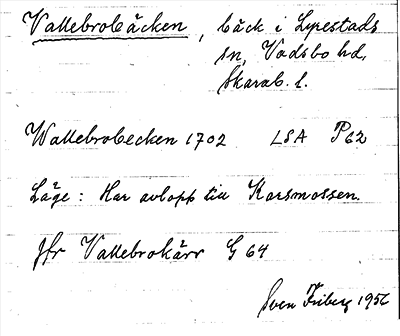 Vallebrobäcken, bäck i Lyrestads
sn, Vadsbo hd,
Skarab. l.
Wallebrobecken 1702 LSA P62
Läge: Har avlopp till Karsmossen.
Jfr Vallebrokärr G 64
Sven Friberg 1956